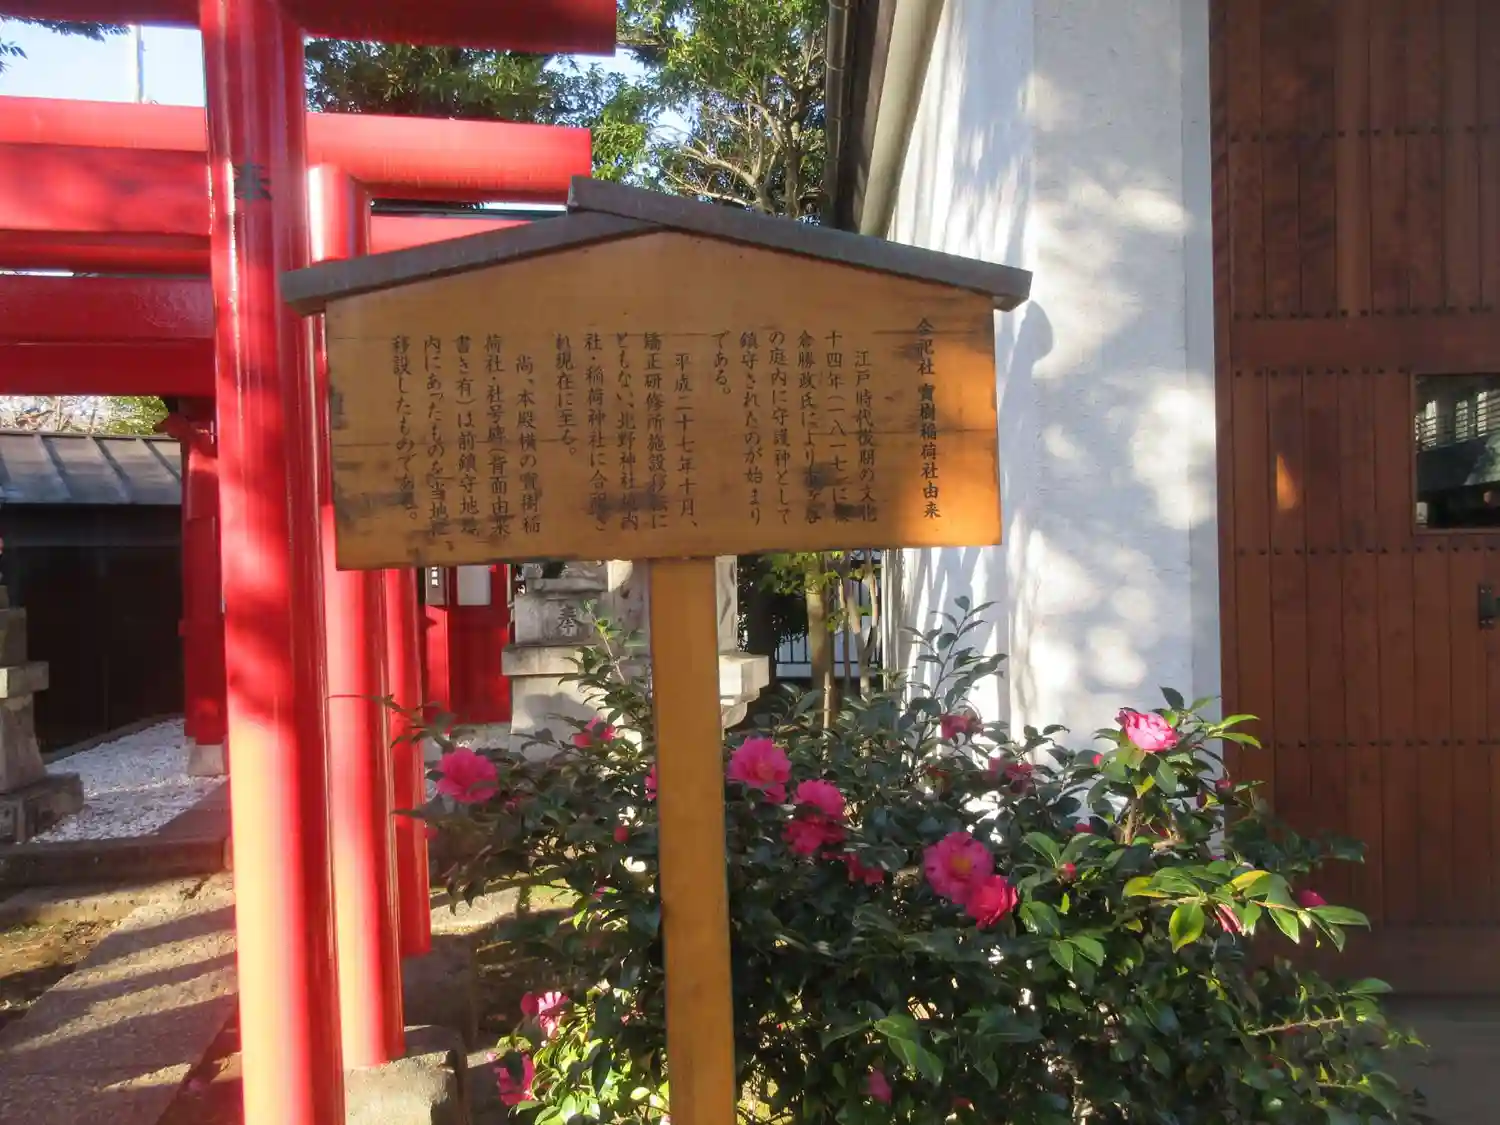 合祀社 寶樹稲荷社由来
江戸時代後期の文化
十四年(一八一七)に
倉勝政氏により
の庭内に守護神として
鎮守されたのが始まり
である。
平成二十七年十月、
矯正研修所施設移転に
ともない、北野神社境内
社・稲荷神社に合祀さ
れ現在に至る。
尚、本殿横の寶樹稲
荷社・社号碑(背面由来
書き有)は前鎮守地
内にあったものを当地に
移設したものである。
奉
奉